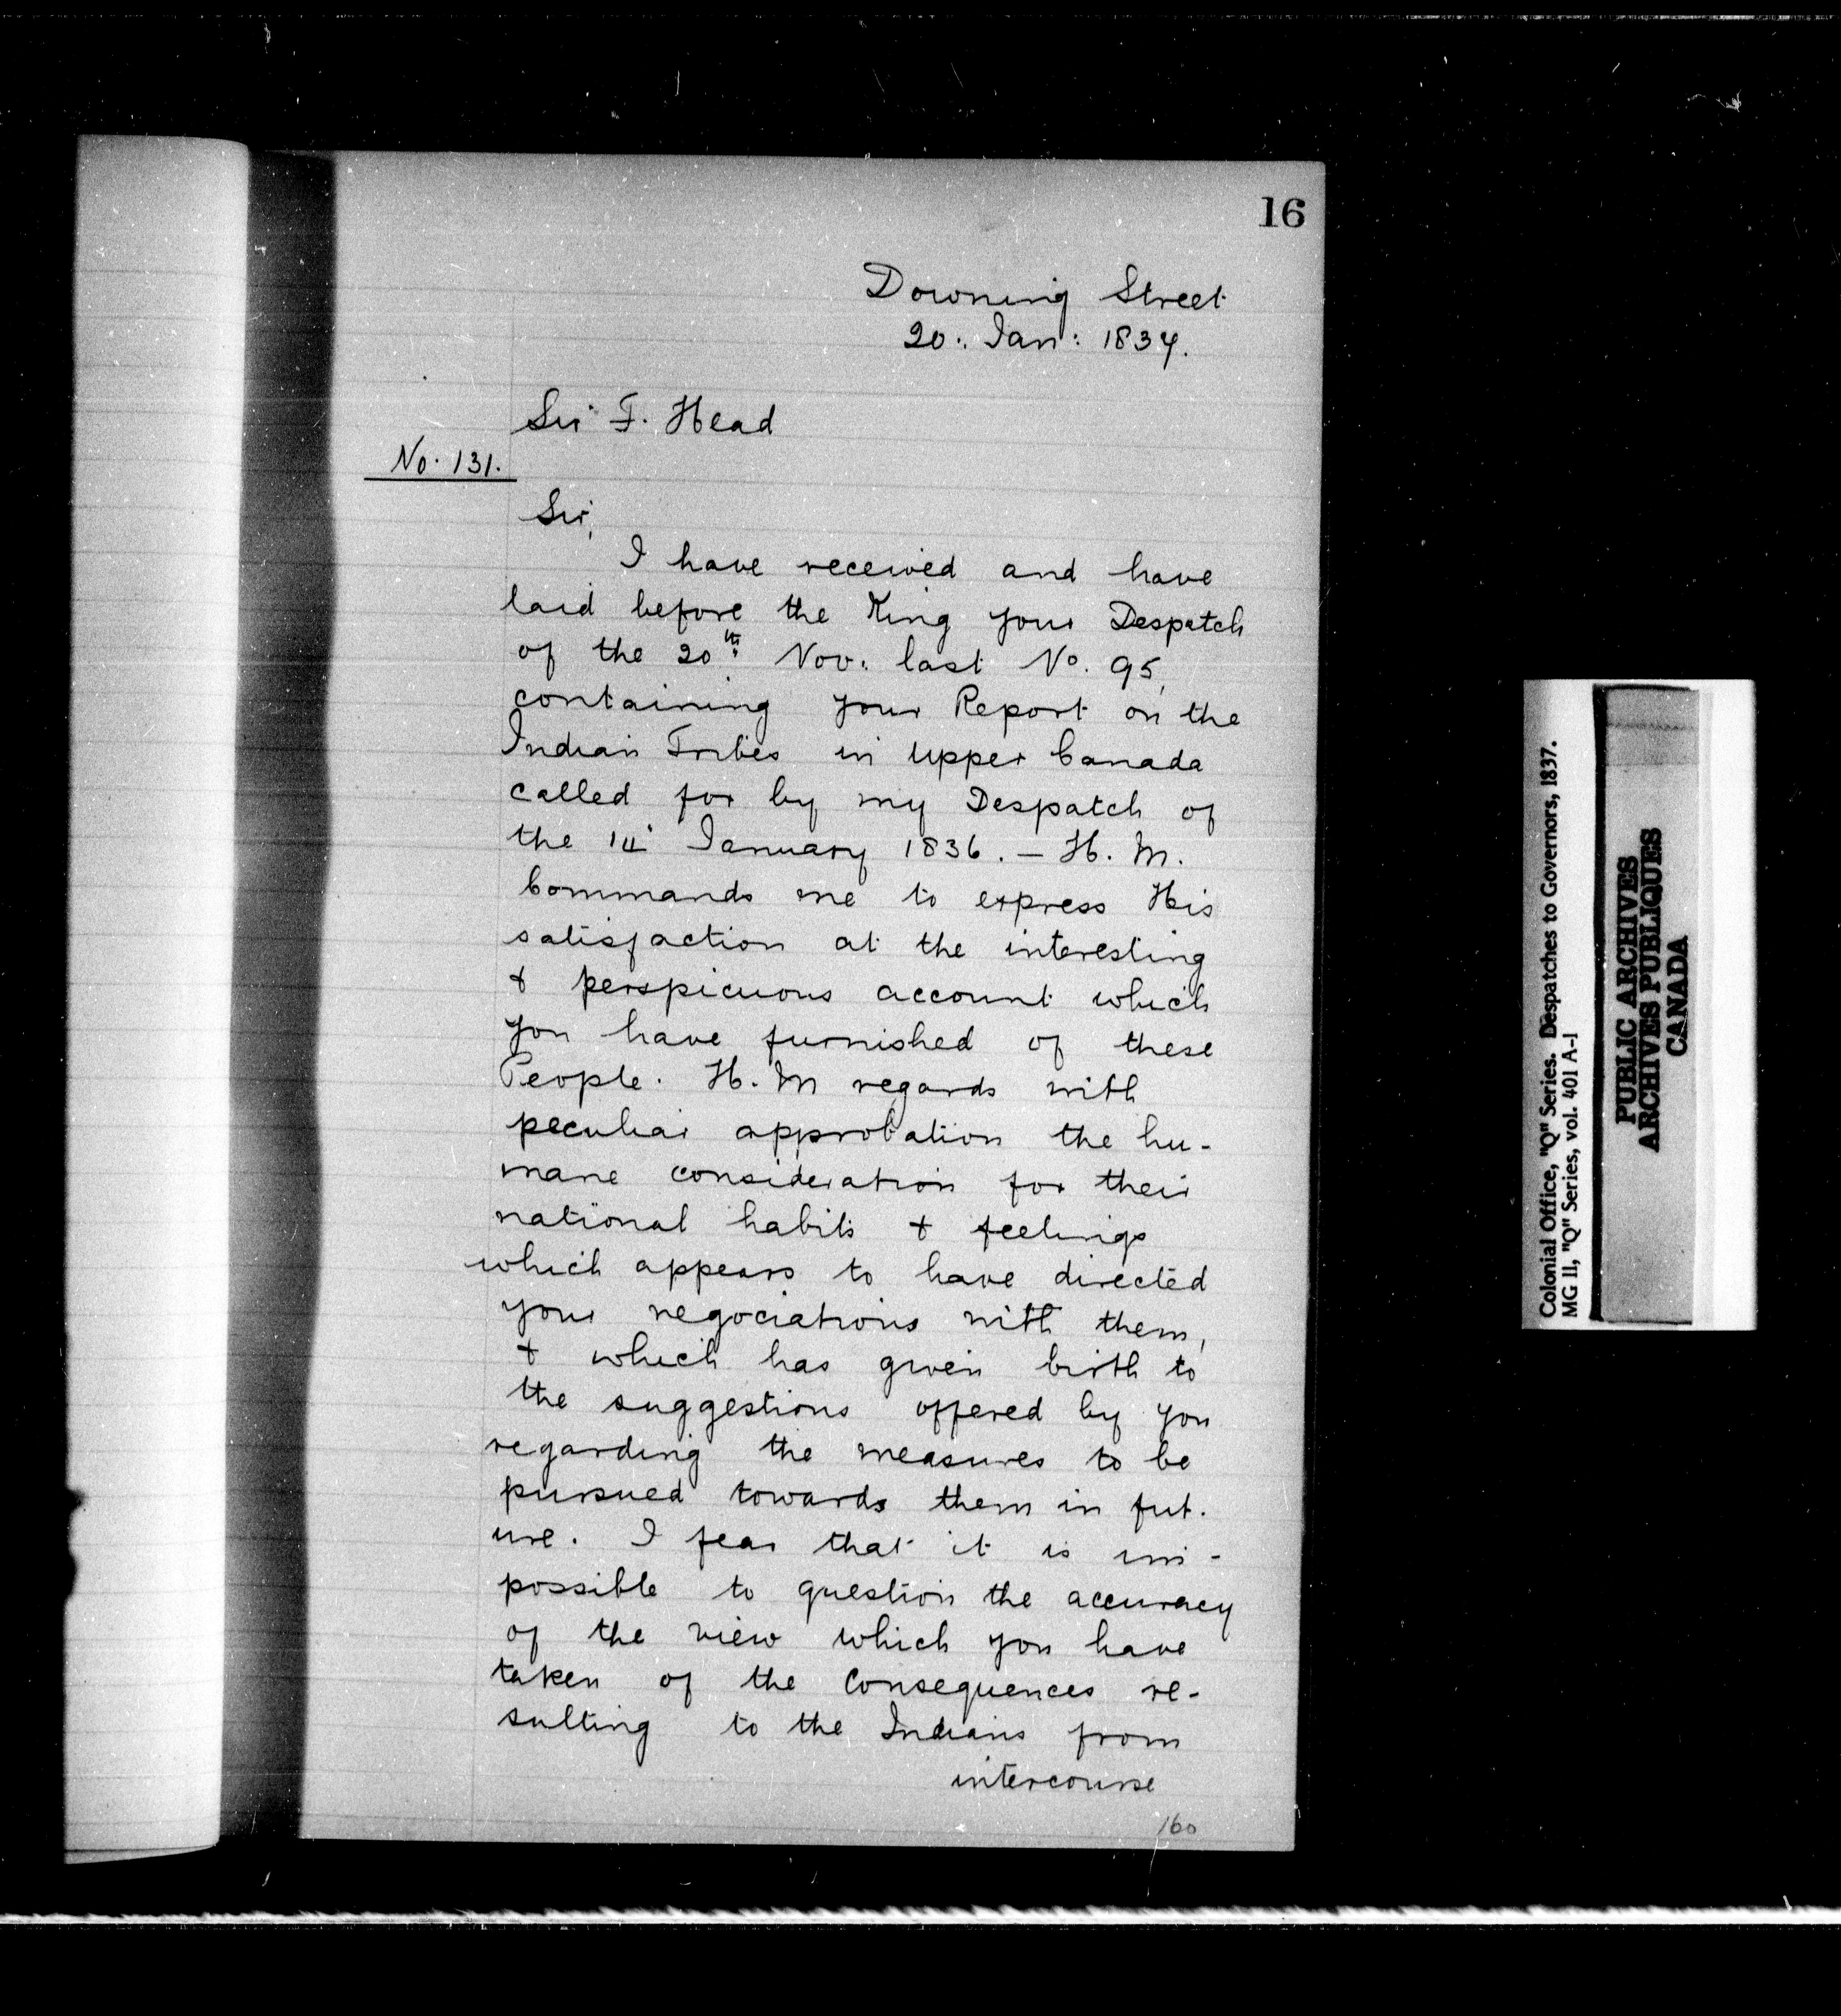 16
Downing Street
20: Jan: 1837.
Sir F. Head
No. 131.
Sir,
I have received and have
laid before the King your Despatch
of the 20th: Nov. last No. 95,
containing your Report on the
Indian Tribes in Upper Canada
called for by my Despatch of
the 14 January 1836. – H. M.
Commands me to express His
satisfaction at the interesting
& perspicuous account which
you have furnished of these
People. H. M regards with
peculiar approbation the hu-
mane consideration for their
national habits & feelings
which appears to have directed
your negociations with them,
& which has given birth to
the suggestions offered by you
regarding the measures to be
pursued towards them in fut.
ure. I fear that it is im-
possible to question the accuracy
of the view which you have
taken of the Consequences re-
sulting to the Indians from
intercourse
160
Colonial Office, "Q" Series. Despatches to Governors, 1837.
MG 11, "Q" Series, vol. 401 A-1
PUBLIC ARCHIVES
ARCHIVES PUBLIQUES
CANADA